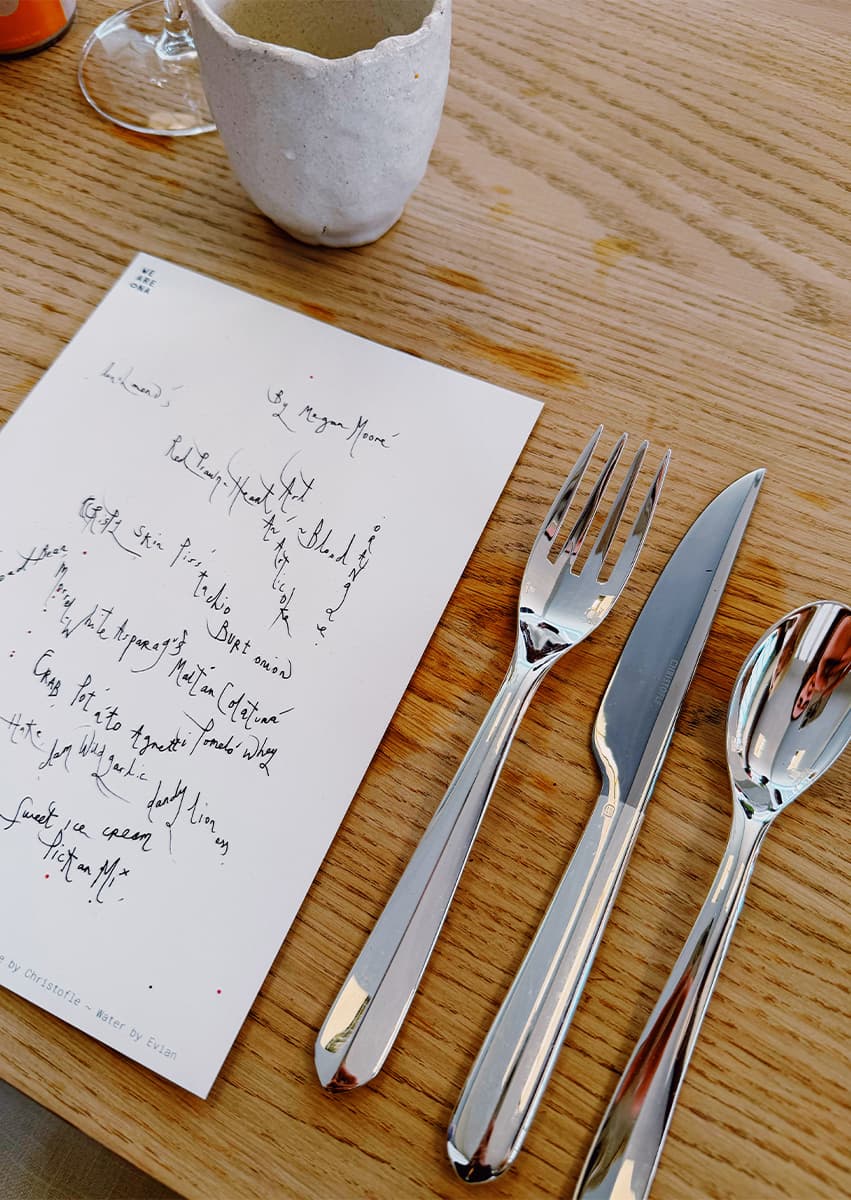 WE
ARE
ONA
By Megan Moore
Red Prawn - Heart Art
An Articoke ~ Blood ORANgLe
CRISty Skin Piss tachio
Burt onion
Beer
Morel White Asparag's Maltan Colatura
CRAB Pot ato Agnetti Pomelo Whey
Hake Jam Wild garlic dandy lion
Sweet ice cream
Pick an Mix
by Christofle ~ Water by Evian